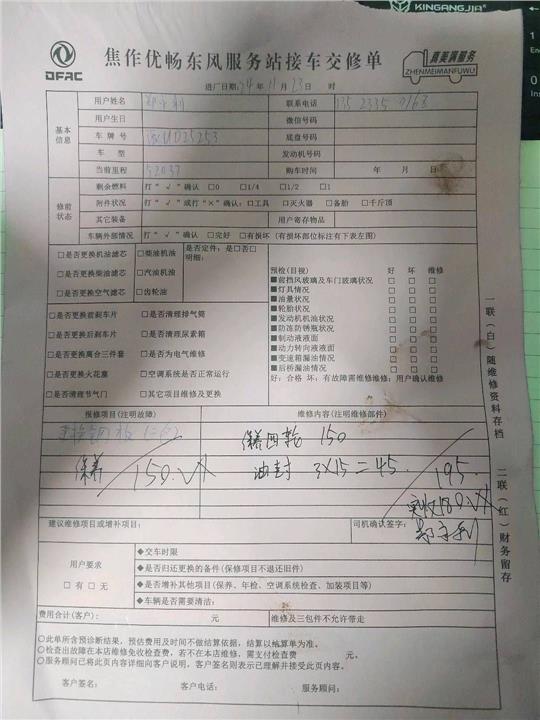 KINGANGJIA
DFAC
焦作优畅东风服务站接车交修单
真美满服务
ZHENMEIMANFUWU
进厂日期:24年11月23日 时
基本信息
用户姓名
联系电话 135 2335 0168
用户生日 微信号码
车牌号 底盘号码
车型 发动机号码
当前里程 52037 购车时间 年 月 日
修前状态
剩余燃料 打“√”确认 □0 □1/4 □1/2 □1
附件状况 打“√”或打“×”确认:□工具 □灭火器 □备胎 □千斤顶
其它装备 用户寄存物品
车辆外部情况 打“√”确认 □完好 □有损坏(有损坏部位标注有下表左图)
□是否更换机油滤芯 □柴油机油 是否定件:是□否□
明细:
□是否更换柴油滤芯 □汽油机油
□是否更换空气滤芯 □齿轮油
□是否更换前刹车片 □是否清理排气筒
□是否更换后刹车片 □是否清理尿素箱
□是否更换离合三件套 □是否为电气维修
□是否更换火花塞 □空调系统是否正常运行
□是否清理节气门 □其它项目维修及更换
预检(目视) 好 坏 维修
■前挡风玻璃及车门玻璃状况 □ □ □
■灯具情况 □ □ □
■油量状况 □ □ □
■轮胎状况 □ □ □
■发动机机油状况 □ □ □
■防冻防锈瓶状况 □ □ □
■制动液液面 □ □ □
■动力转向液液面 □ □ □
■变速箱漏油情况 □ □ □
■后桥漏油情况 □ □ □
好:合格 坏:有故障需维修维修:用户确认维修
报修项目(注明故障) 维修内容(注明维修部件)
保养四轮 150
保养 150.
油封 3×15=45.
195.
实收180
建议维修项目或增补项目: 司机确认签字:
用户要求
□有 □无
◆交车时限
◆是否归还更换的备件(保修项目不退还旧件)
◆是否增补其他项目(保养、年检、空调系统检查、加装项目等)
◆车辆是否需要清洁:
费用合计(客户): 元 维修及三包件不允许带走
○此单所含预诊断结果,预估费用及时间不做结算依据,结算以结算单为准。
○检查出故障在本店维修免收检查费,若不在本店维修,需支付检查费 元。
○服务顾问已将此页内容详细向客户说明,客户签名则表示已理解并接受此页内容。
客户签名: 客户电话: 服务顾问:
一联(白)随维修资料存档
二联(红)财务留存